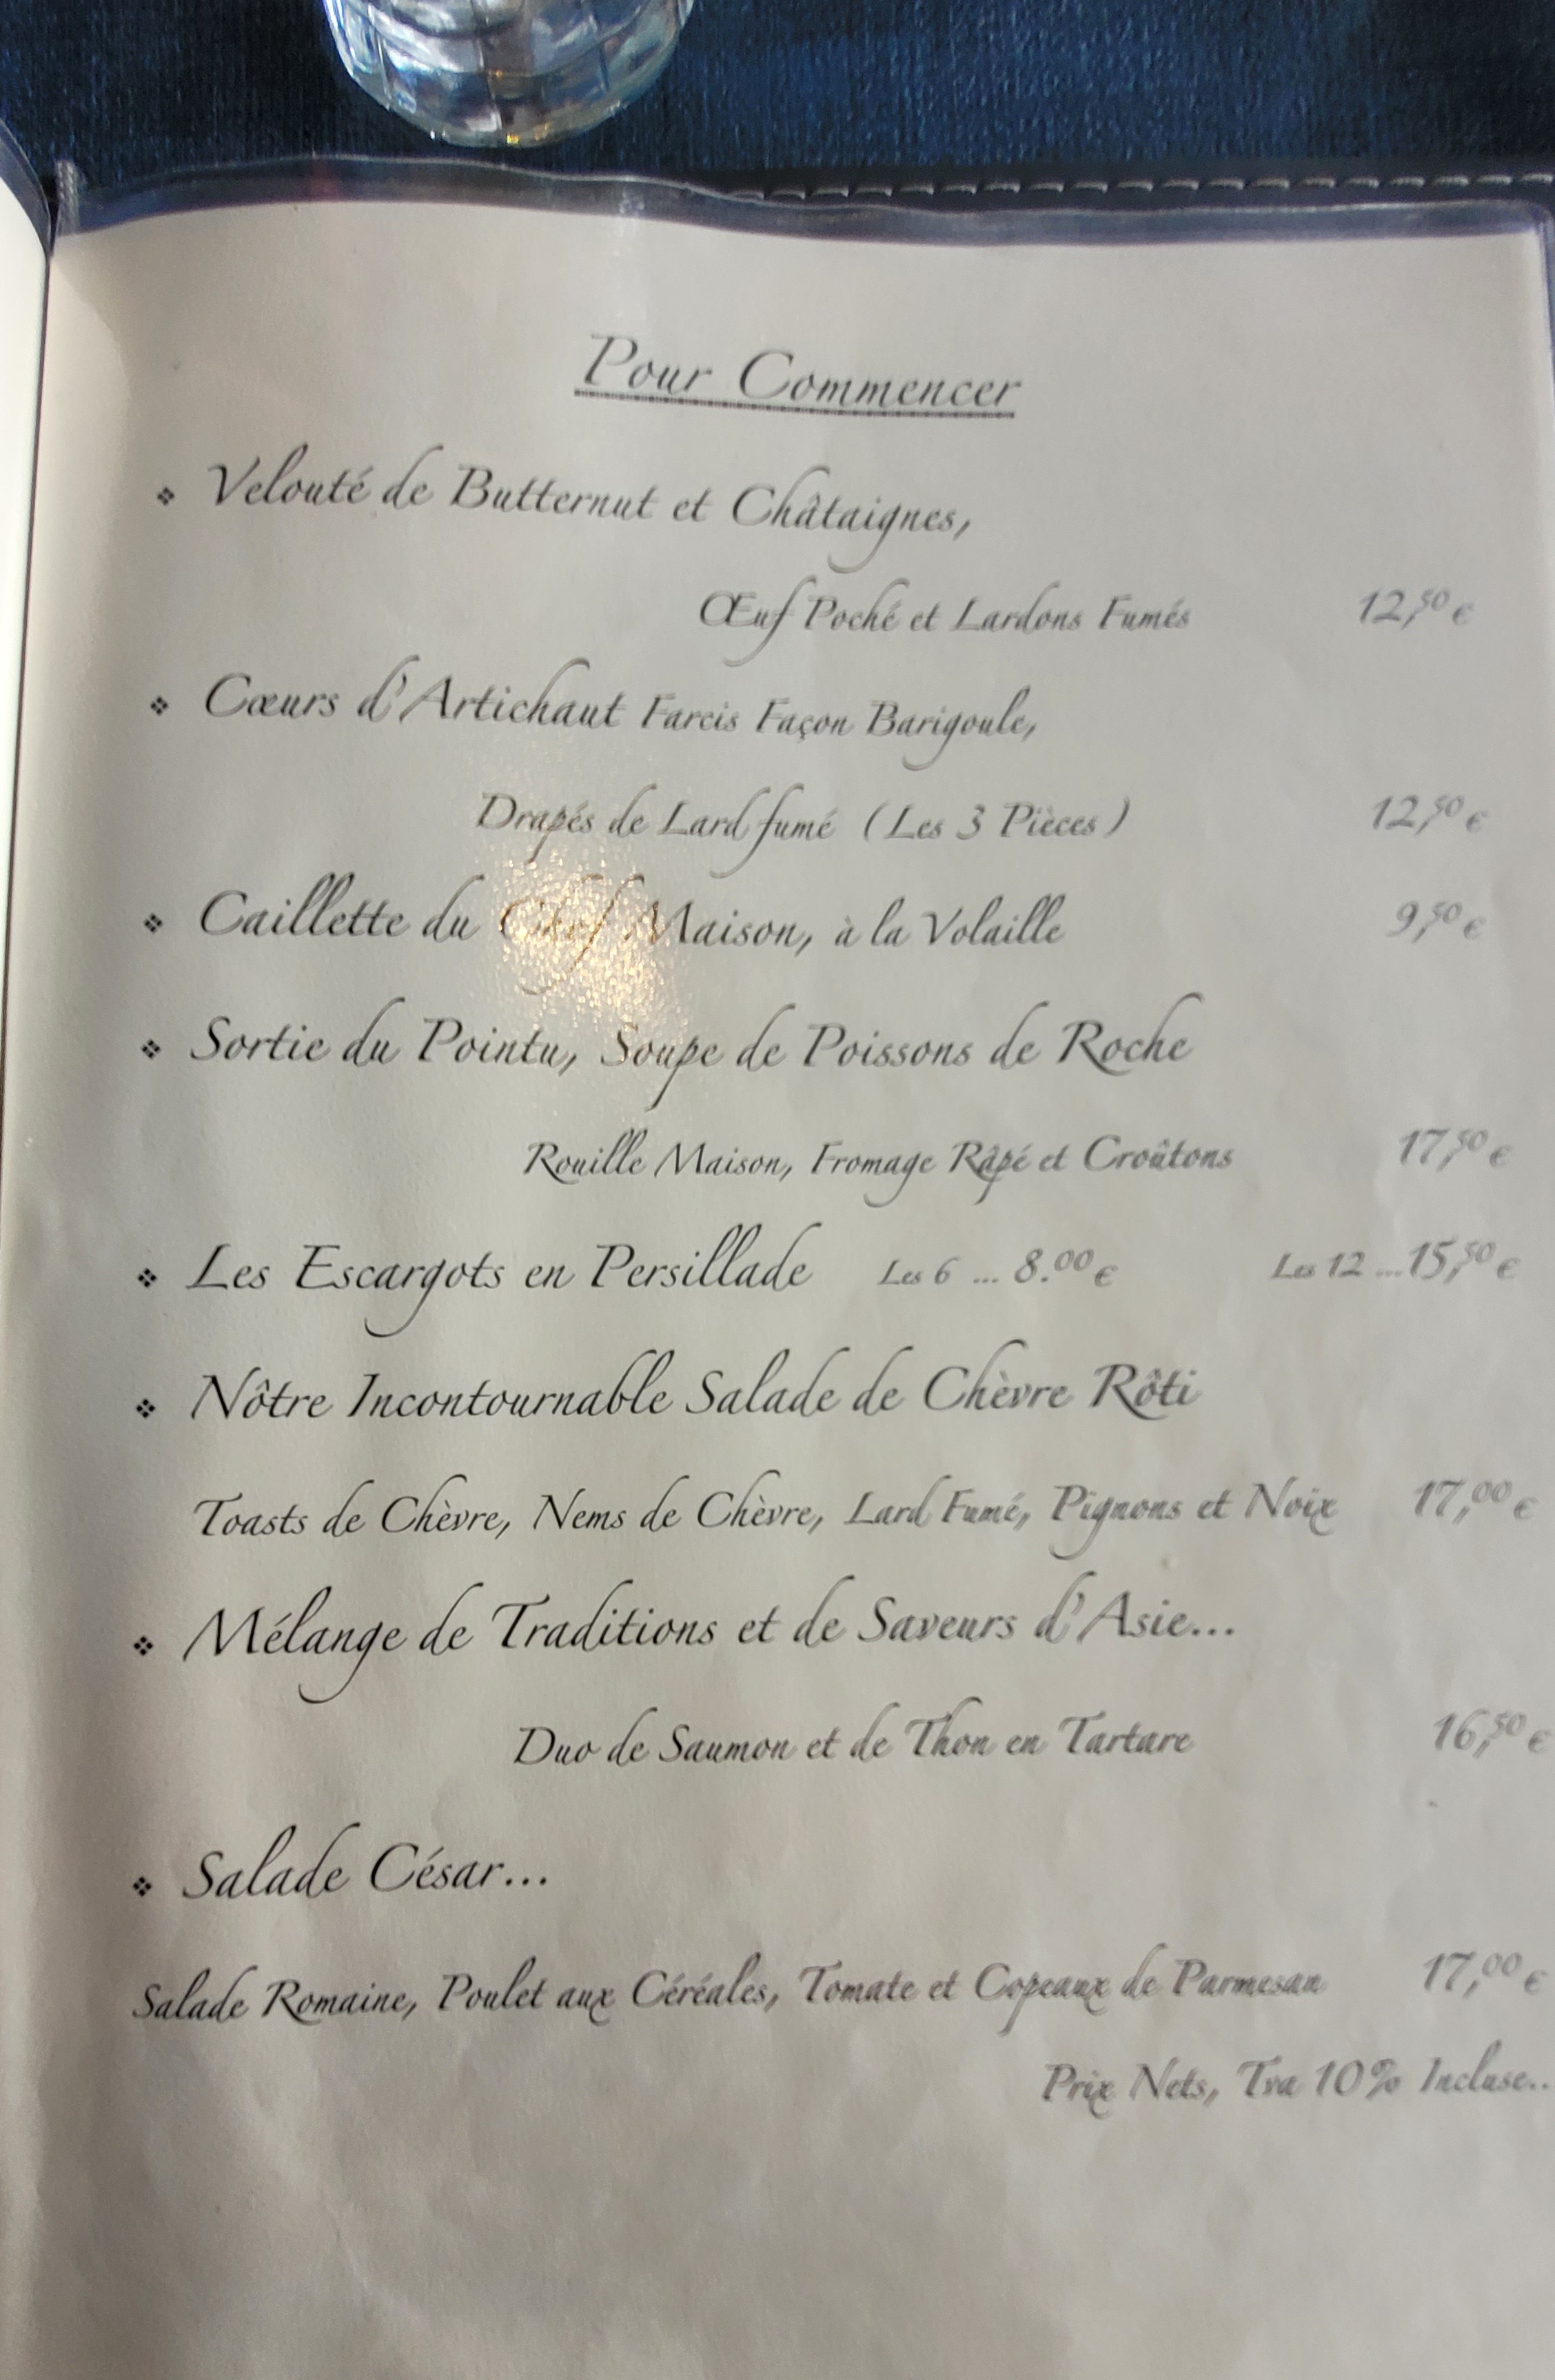 Pour Commencer
❖ Velouté de Butternut et Châtaignes,
Œuf Poché et Lardons Fumés 12,50 €
❖ Cœurs d'Artichaut Farcis Façon Barigoule,
Drapés de Lard fumé (Les 3 Pièces) 12,50 €
❖ Caillette du Chef Maison, à la Volaille 9,50 €
❖ Sortie du Pointu, Soupe de Poissons de Roche
Rouille Maison, Fromage Râpé et Croûtons 17,50 €
❖ Les Escargots en Persillade Les 6 ... 8.00 € Les 12 ...15,50 €
❖ Nôtre Incontournable Salade de Chèvre Rôti
Toasts de Chèvre, Nems de Chèvre, Lard Fumé, Pignons et Noix 17,00 €
❖ Mélange de Traditions et de Saveurs d'Asie...
Duo de Saumon et de Thon en Tartare 16,50 €
❖ Salade César...
Salade Romaine, Poulet aux Céréales, Tomate et Copeaux de Parmesan 17,00 €
Prix Nets, Tva 10% Incluse..